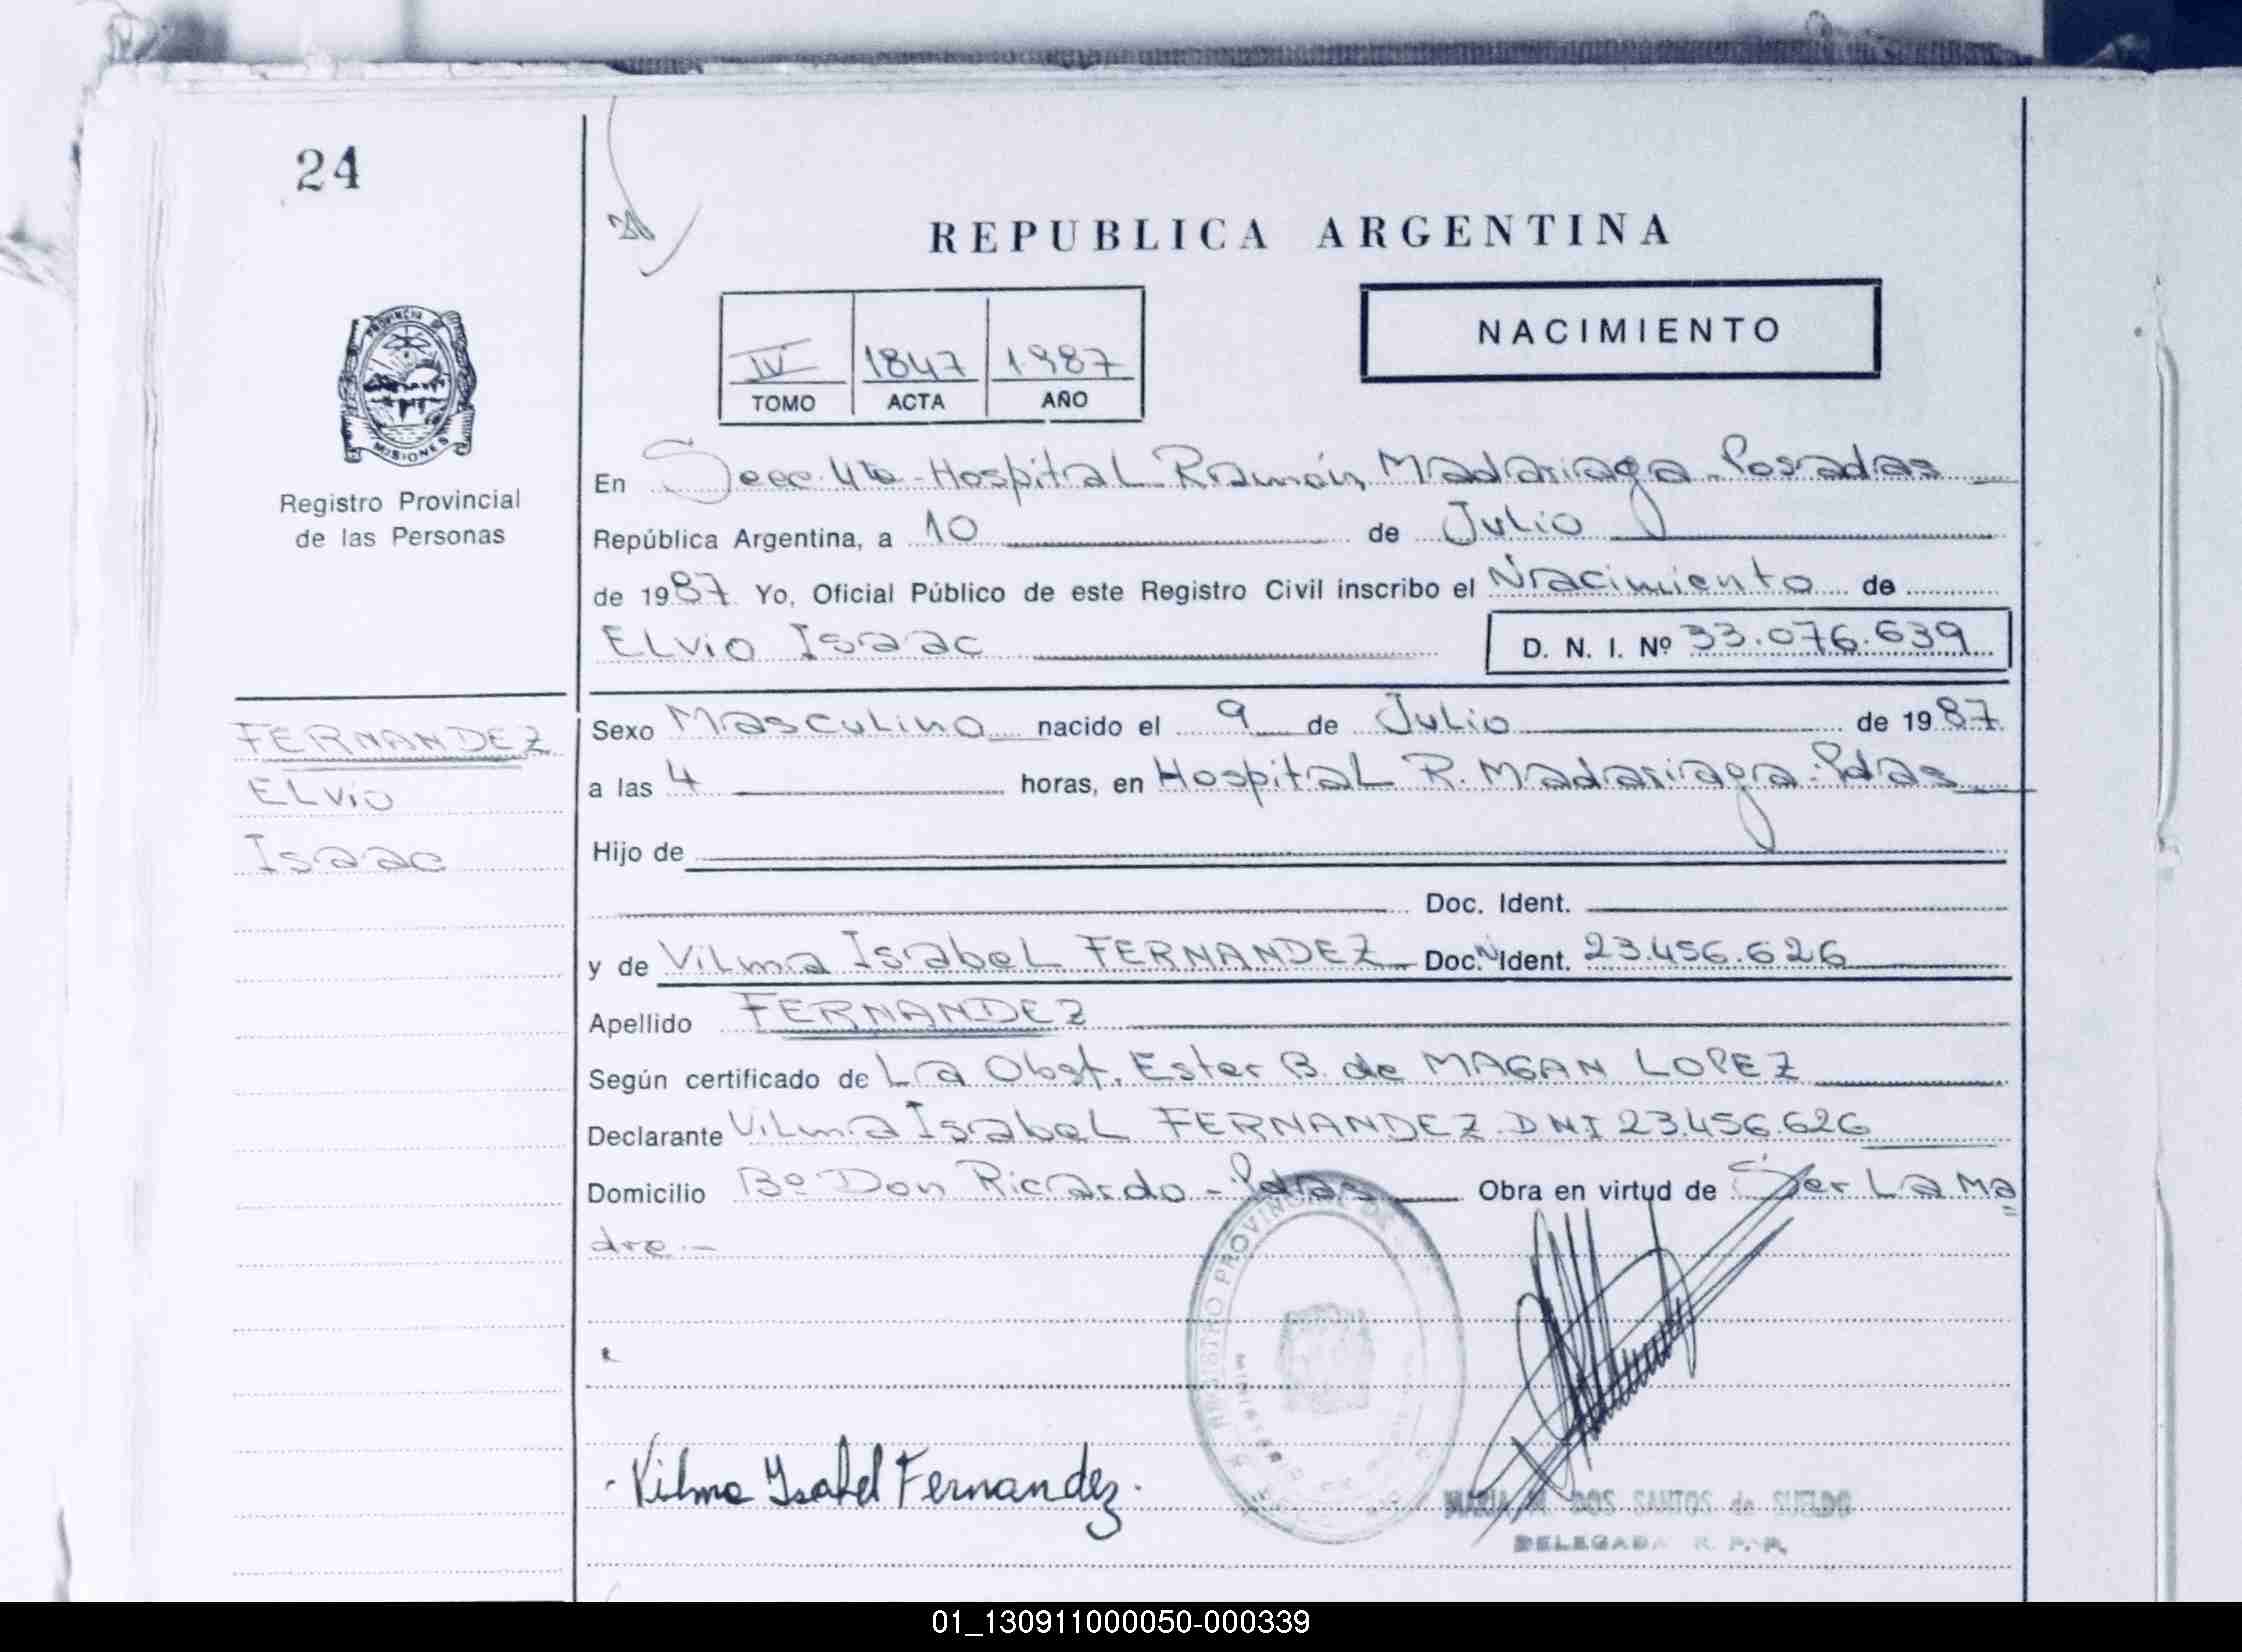 24
REPUBLICA ARGENTINA
NACIMIENTO
IV 1847 1987
TOMO ACTA AÑO
PROVINCIA DE
MISIONES
Registro Provincial
de las Personas
En Secc. 4ta - Hospital Ramón Madariaga - Posadas
República Argentina, a 10 de Julio
de 1987 Yo, Oficial Público de este Registro Civil inscribo el Nacimiento de
Elvio Isaac D. N. I. Nº 33.076.639
FERNANDEZ
Elvio
Isaac
Sexo Masculino nacido el 9 de Julio de 1987
a las 4 horas, en Hospital R. Madariaga - Pdas
Hijo de
Doc. Ident.
y de Vilma Isabel FERNANDEZ Doc. N Ident. 23.456.626
Apellido FERNANDEZ
Según certificado de La Obst. Ester B. de MAGAN LOPEZ
Declarante Vilma Isabel FERNANDEZ DNI 23.456.626
Domicilio Bº Don Ricardo - Pdas Obra en virtud de Ser La Ma
dre.-
REGISTRO PROVINCIAL DE
Vilma Isabel Fernandez.
MARIA DOS SANTOS de
DELEGADA R. P. P.
01_130911000050-000339